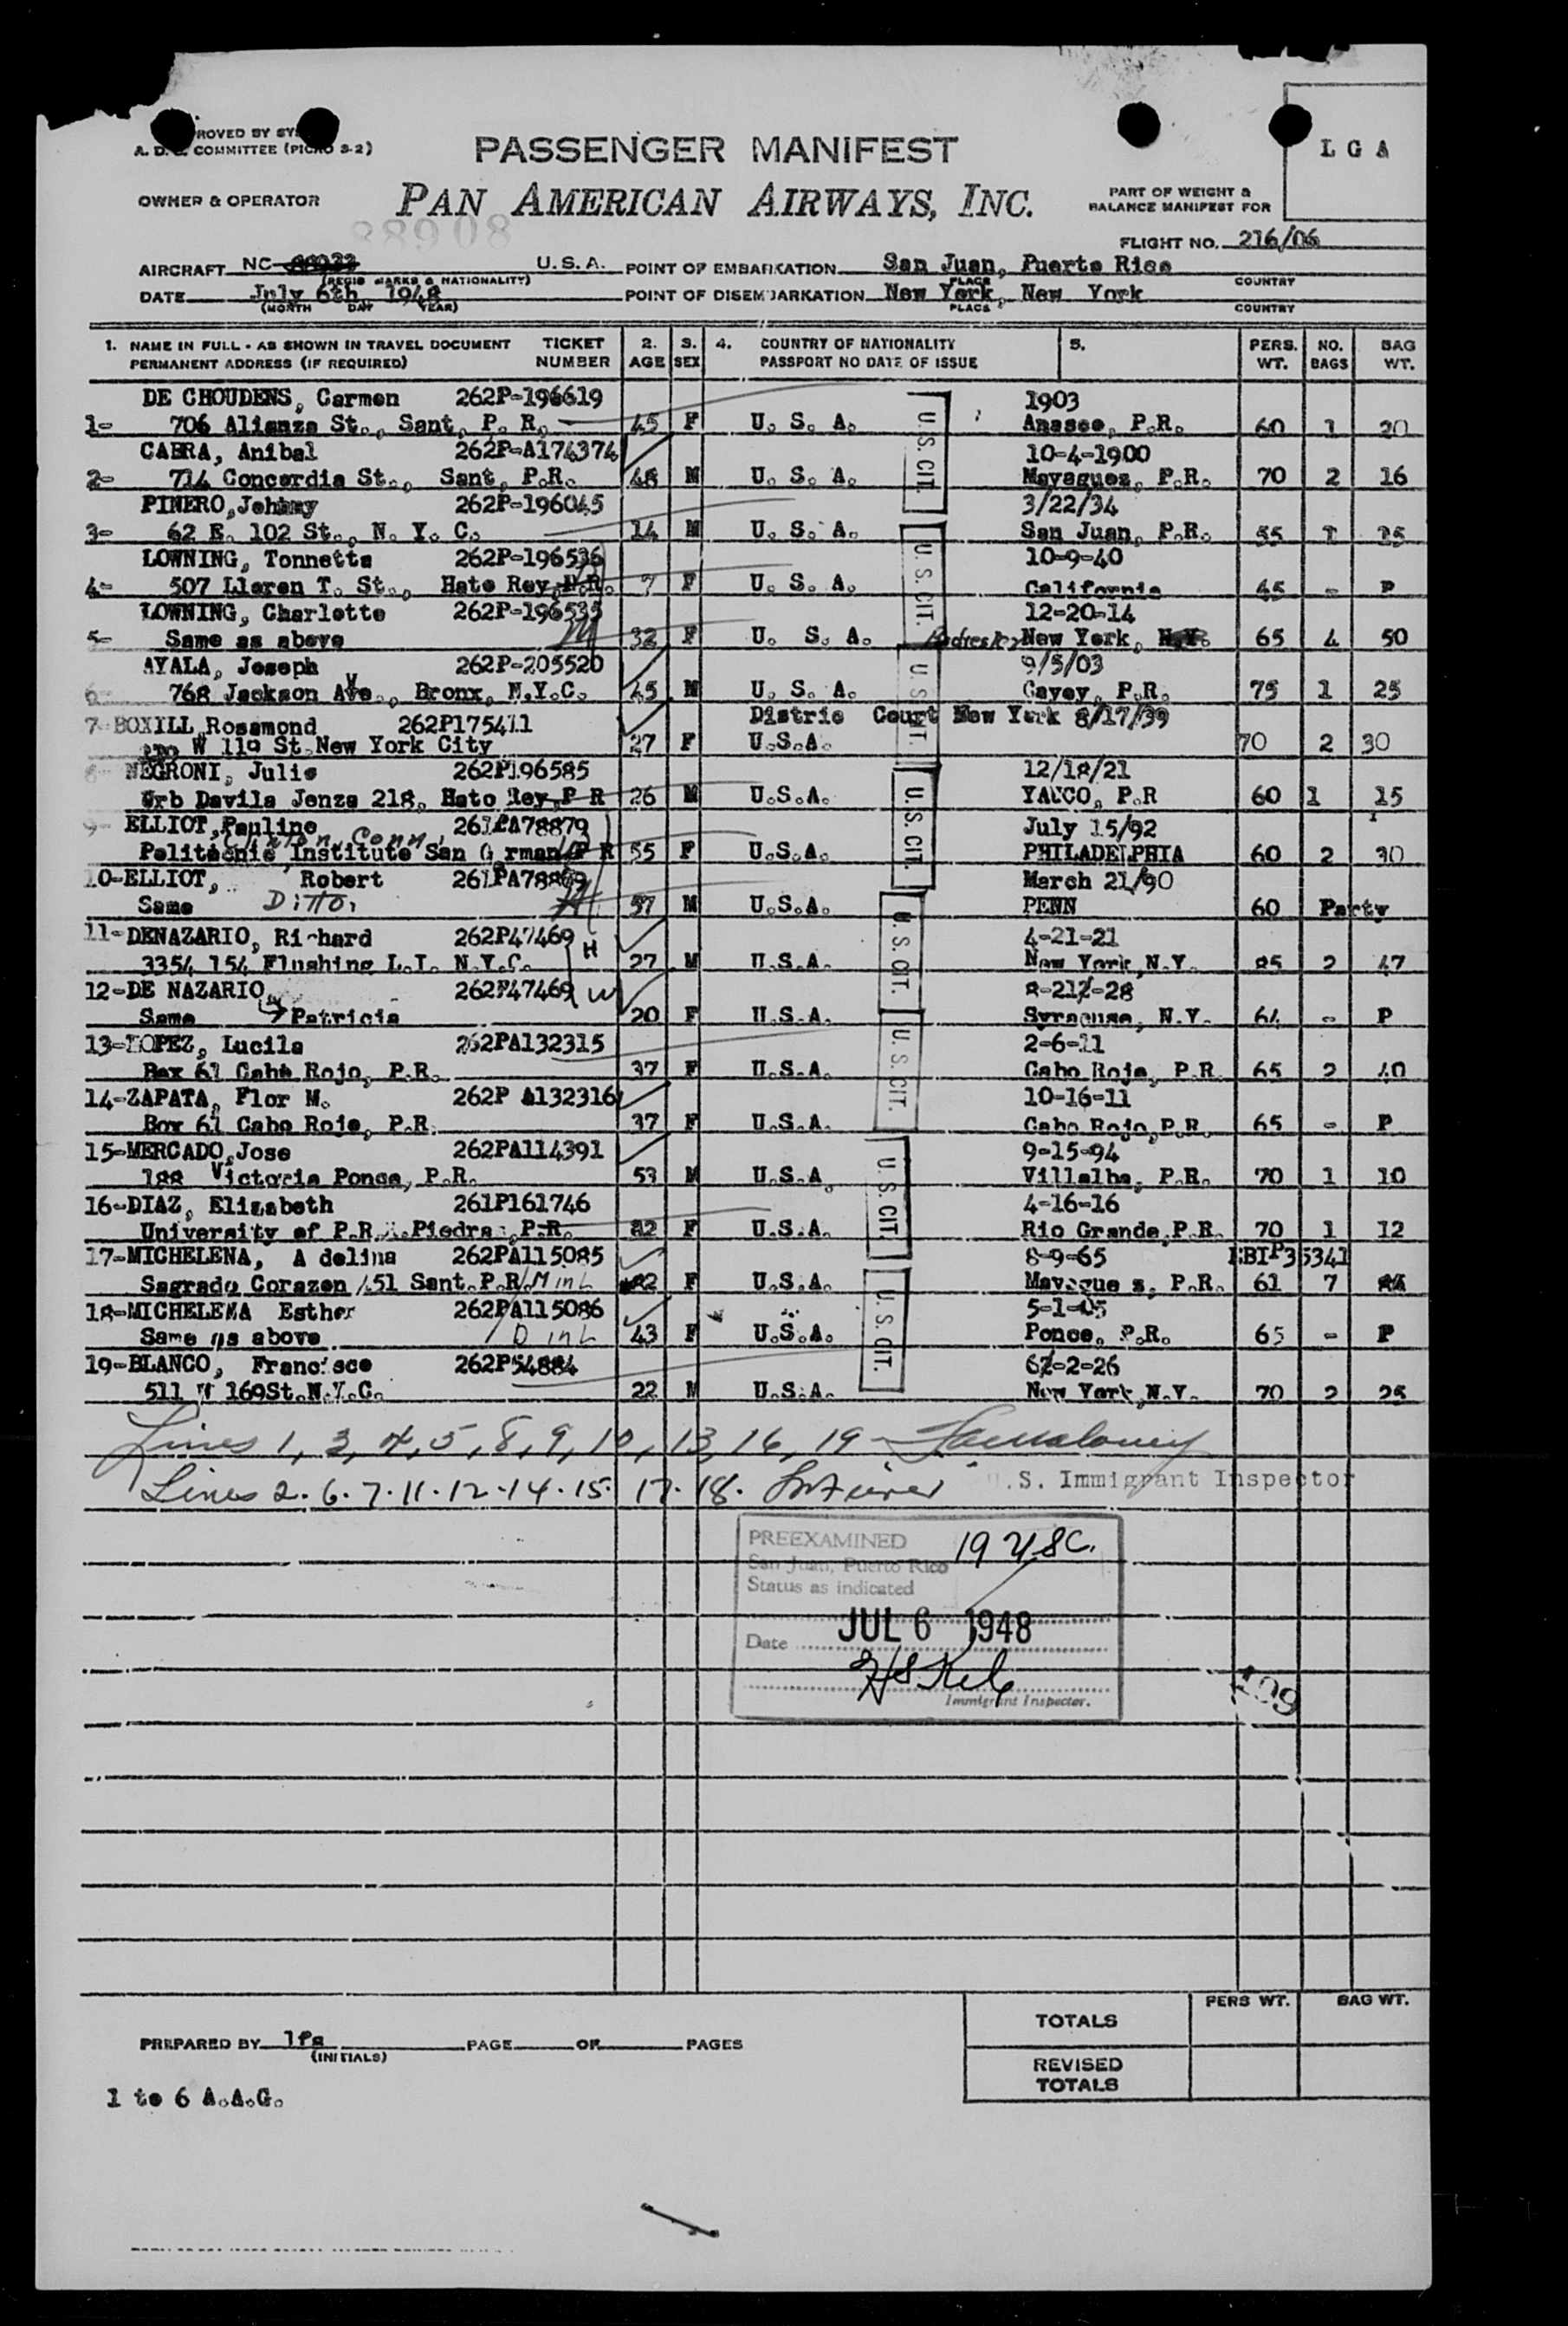 ROVED BY SYS
A. D. COMMITTEE (PICAO S-2)
PASSENGER MANIFEST
L G A
OWNER & OPERATOR
PAN AMERICAN AIRWAYS, INC.
PART OF WEIGHT &
BALANCE MANIFEST FOR
88908
FLIGHT NO. 216/06
AIRCRAFT NC- U.S.A. POINT OF EMBARKATION San Juan, Puerto Rico
(REGIS MARKS & NATIONALITY) PLACE COUNTRY
DATE July 6th 1948 POINT OF DISEMBARKATION New York, New York
(MONTH DAY YEAR) PLACE COUNTRY
1. NAME IN FULL - AS SHOWN IN TRAVEL DOCUMENT TICKET 2. 3. 4. COUNTRY OF NATIONALITY 5. PERS. NO. BAG
PERMANENT ADDRESS (IF REQUIRED) NUMBER AGE SEX PASSPORT NO DATE OF ISSUE WT. BAGS WT.
DE CHOUDENS, Carmen 262P-196619 1903
1- 706 Alianza St., Sant, P. R. 45 F U. S. A. Anasco, P.R. 60 1 20
CABRA, Anibal 262P-A174374 10-4-1900
2- 714 Concordia St., Sant, P.R. 48 M U. S. A. Mayaguez, P.R. 70 2 16
PINERO, Johnny 262P-196045 3/22/34
3- 62 E. 102 St., N. Y. C. 14 M U. S. A. San Juan, P.R. 55 1
LOWNING, Tonnette 262P-196536 10-9-40
4- 507 Lloren T. St., Hato Rey, P.R. 7 F U. S. A. California 45 - P
LOWNING, Charlotte 262P-196535 12-20-14
5- Same as above 32 F U. S. A. New York, N.Y. 65 4 50
AYALA, Joseph 262P-205520 9/5/03
6- 768 Jackson Ave., Bronx, N.Y.C. 45 M U. S. A. Cayey, P.R. 75 1 25
7- BOXILL Rosamond 262P175411 Distric Court New York 8/17/39
W 119 St. New York City 27 F U.S.A. 70 2 30
8- NEGRONI, Julio 262P196585 12/18/21
Urb Davila Jenza 218, Hato Rey, P R 26 M U.S.A. YAUCO, P.R 60 1 15
9- ELLIOT, Pauline 261PA78879 July 15/92
Conn.
Politecnic Institute San German P R 55 F U.S.A. PHILADELPHIA 60 2 30
10-ELLIOT, Robert March 21/90
Same Ditto 57 M U.S.A. PENN 60 Party
11- DENAZARIO, Richard 262P47469 H 4-21-21
3354 154 Flushing L.I. N.Y.C. 27 M U.S.A. New York, N.Y. 85 2 47
12-DE NAZARIO, 262P47469 W 8-21-28
Same Patricia 20 F U.S.A. Syracuse, N.Y. 64 - P
13-LOPEZ, Lucila 262PA132315 2-6-11
Box 61 Cabo Rojo, P.R. 37 F U.S.A. Cabo Rojo, P.R. 65 2 40
14-ZAPATA, Flor M. 262P A132316 10-16-11
Box 61 Cabo Rojo, P.R. 37 F U.S.A. Cabo Rojo, P.R. 65 - P
15-MERCADO, Jose 262PA114391 9-15-94
188 Victoria Ponce, P.R. 53 M U.S.A. Villalba, P.R. 70 1 10
16-DIAZ, Elizabeth 261P161746 4-16-16
University of P.R. R.Piedras, P.R. F U.S.A. Rio Grande, P.R. 70 1 12
17-MICHELENA, A delina 262PA115085 8-9-65 EBTP35341
Sagrado Corazon 451 Sant. P.R. M in L 82 F U.S.A. Mayaguez, P.R. 61 7
18-MICHELENA Esther 262PA115086 5-1-05
Same as above D in L 43 F U.S.A. Ponce, P.R. 65 - P
19-BLANCO, Francisco 262P54884 6-2-26
511 W 169St. N.Y.C. 22 M U.S.A. New York, N.Y. 70 2 25
U. S. CIT.
U. S. CIT.
U. S. CIT.
U. S. CIT.
U. S. CIT.
U. S. CIT.
U. S. CIT.
U. S. CIT.
Lines 1, 3, 4, 5, 8, 9, 10, 13, 16, 19
Lines 2. 6. 7. 11. 12. 14. 15. 17. 18.
U.S. Immigrant Inspector
PREEXAMINED 19 USC.
San Juan, Puerto Rico
Status as indicated
Date JUL 6 1948
Immigrant Inspector.
109
PERS WT. BAG WT.
TOTALS
PREPARED BY lfs PAGE OF PAGES
(INITIALS)
REVISED
TOTALS
1 to 6 A.A.G.